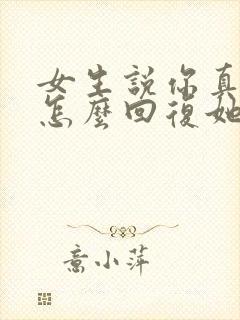 女生說你真
怎麼回復她
意小萍